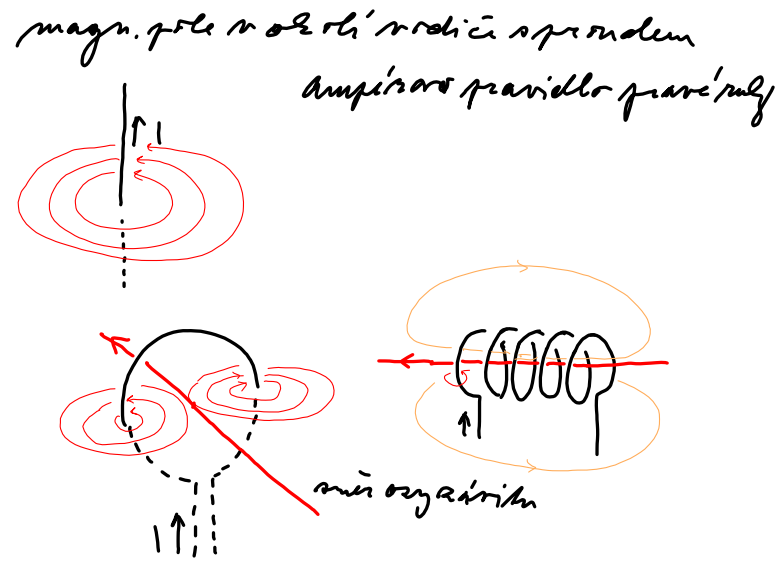 magn. pole v okolí vodiče s proudem
Ampérovo pravidlo pravé ruky
I
I
směr osy závitu